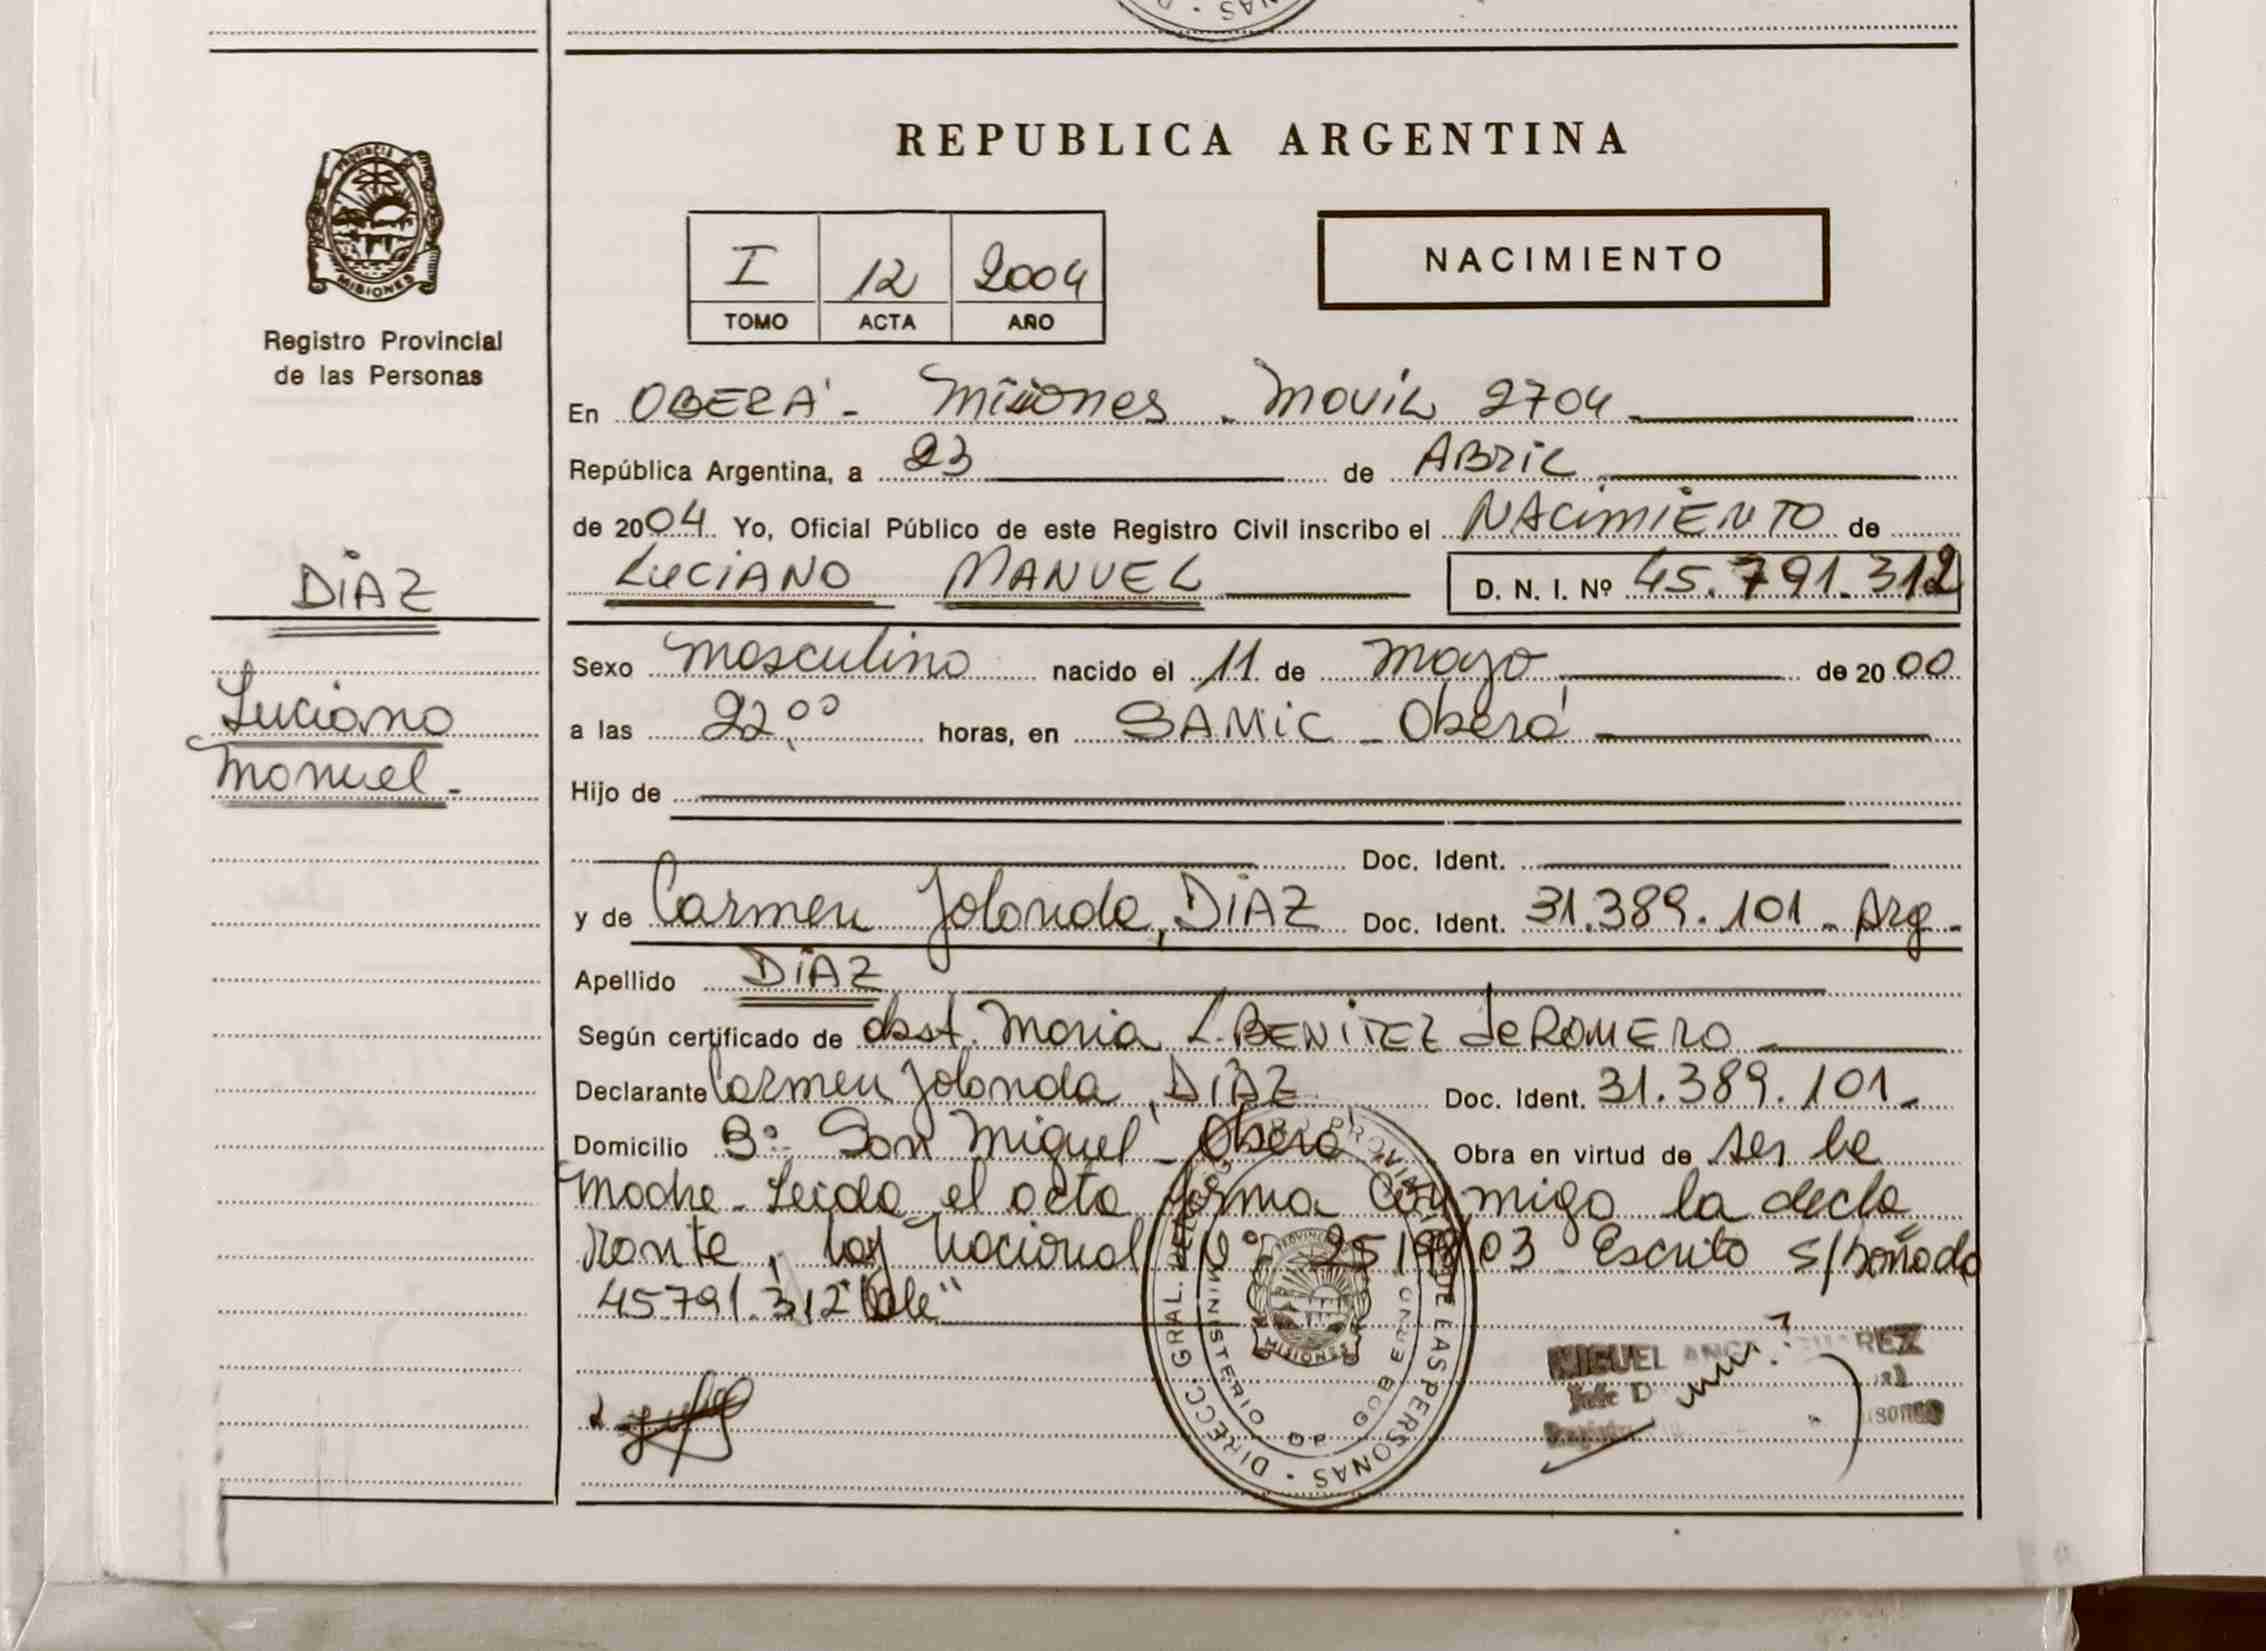 REPUBLICA ARGENTINA
PROVINCIA DE
MISIONES
Registro Provincial
de las Personas
I 12 2004
TOMO ACTA AÑO
NACIMIENTO
En OBERÁ - Misiones - Movil 2704
República Argentina, a 23 de ABRIL
de 2004 Yo, Oficial Público de este Registro Civil inscribo el NACIMIENTO de
LUCIANO MANUEL D. N. I. Nº 45.791.312
DIAZ
Luciano
Manuel -
Sexo masculino nacido el 11 de mayo de 2000
a las 22,00 horas, en SAMIC - Oberá
Hijo de
Doc. Ident.
y de Carmen Yolanda, DIAZ Doc. Ident. 31.389.101 - Arg -
Apellido DIAZ
Según certificado de obst. Maria L. BENITEZ de ROMERO
Declarante Carmen Yolanda, DIAZ Doc. Ident. 31.389.101 -
Domicilio Bº San Miguel - Oberá Obra en virtud de ser la
madre - Leida el acta firma conmigo la decla
rante, Ley Nacional Nº 25 03 Escrito s/
45.791.312 "Vale"
DIRECC. GRAL. DE LAS PERSONAS
MINISTERIO DE GOBIERNO
MISIONES
MIGUEL
Jefe